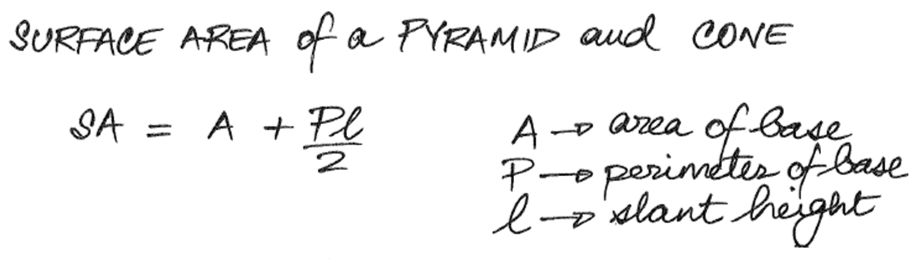 SURFACE AREA of a PYRAMID and CONE
SA = A + Pl/2
A → area of base
P → perimeter of base
l → slant height